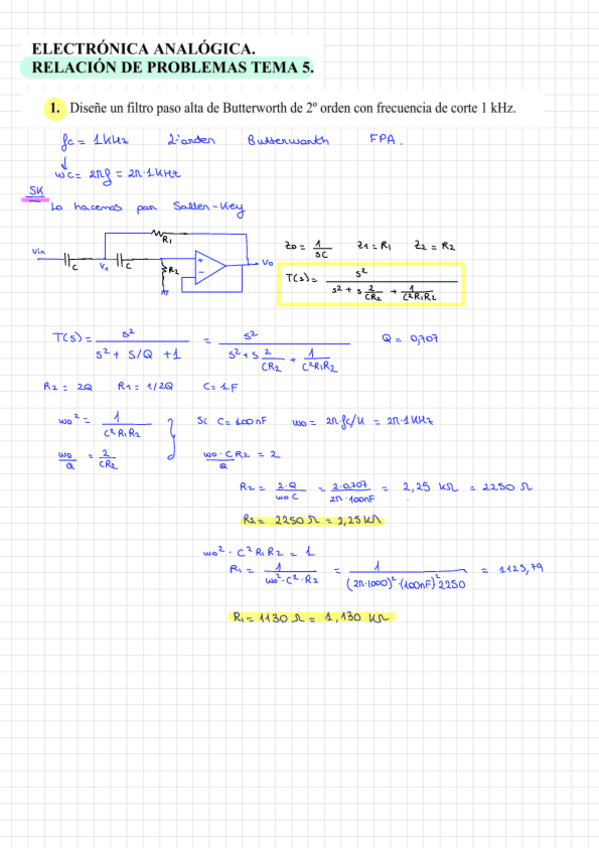 ELECTRÓNICA ANALÓGICA.
RELACIÓN DE PROBLEMAS TEMA 5.
1. Diseñe un filtro paso alta de Butterworth de 2º orden con frecuencia de corte 1 kHz.
fc = 1KHz 2ºorden Butterworth FPA.
↓
wc = 2πf = 2π·1KHz
SK
Lo hacemos por Sallen-Key
R1
Vin C V1 C R2 + - Vo
Z0 = 1/SC Z1 = R1 Z2 = R2
T(s) = s² / (s² + s 2/CR2 + 1/C²R1R2)
T(s) = s² / (s² + S/Q + 1) = s² / (s² + s 2/CR2 + 1/C²R1R2) Q = 0,707
R2 = 2Q R1 = 1/2Q C = 1F
wo² = 1 / C²R1R2 } Si C = 100nF wo = 2π·fc/K = 2π·1KHz
wo/Q = 2/CR2 wo·CR2/Q = 2
R2 = 2·Q / woC = 2·0,707 / 2π·100nF = 2,25 KΩ = 2250 Ω
R2 = 2250 Ω = 2,25 KΩ
wo²·C²R1R2 = 1
R1 = 1 / wo²·C²·R2 = 1 / (2π·1000)²·(100nF)²2250 = 1125,79
R1 = 1130 Ω = 1,130 KΩ